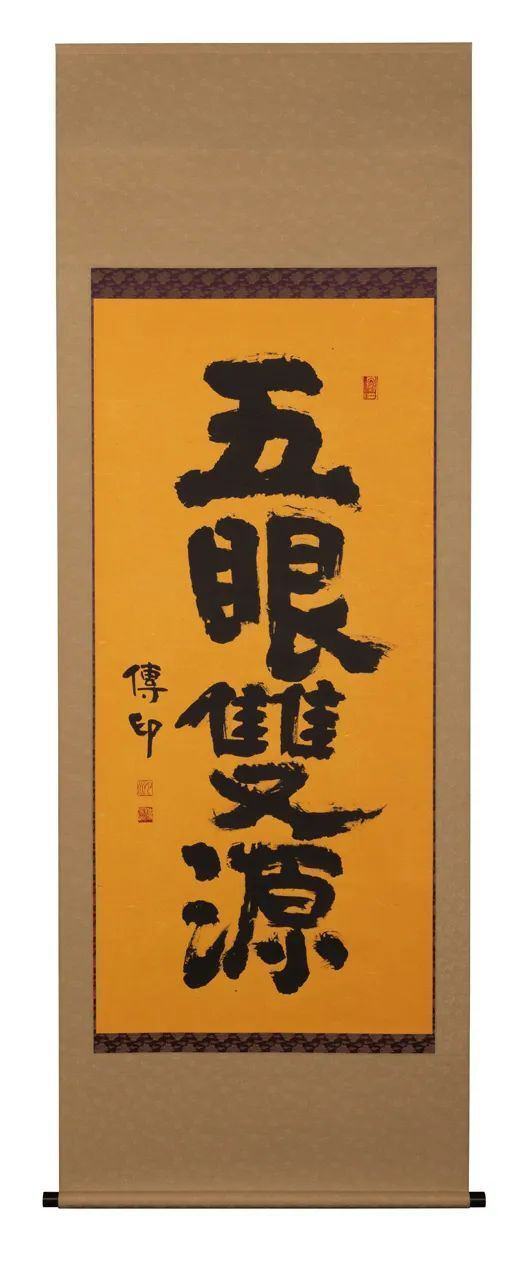 五眼雙源
傳印